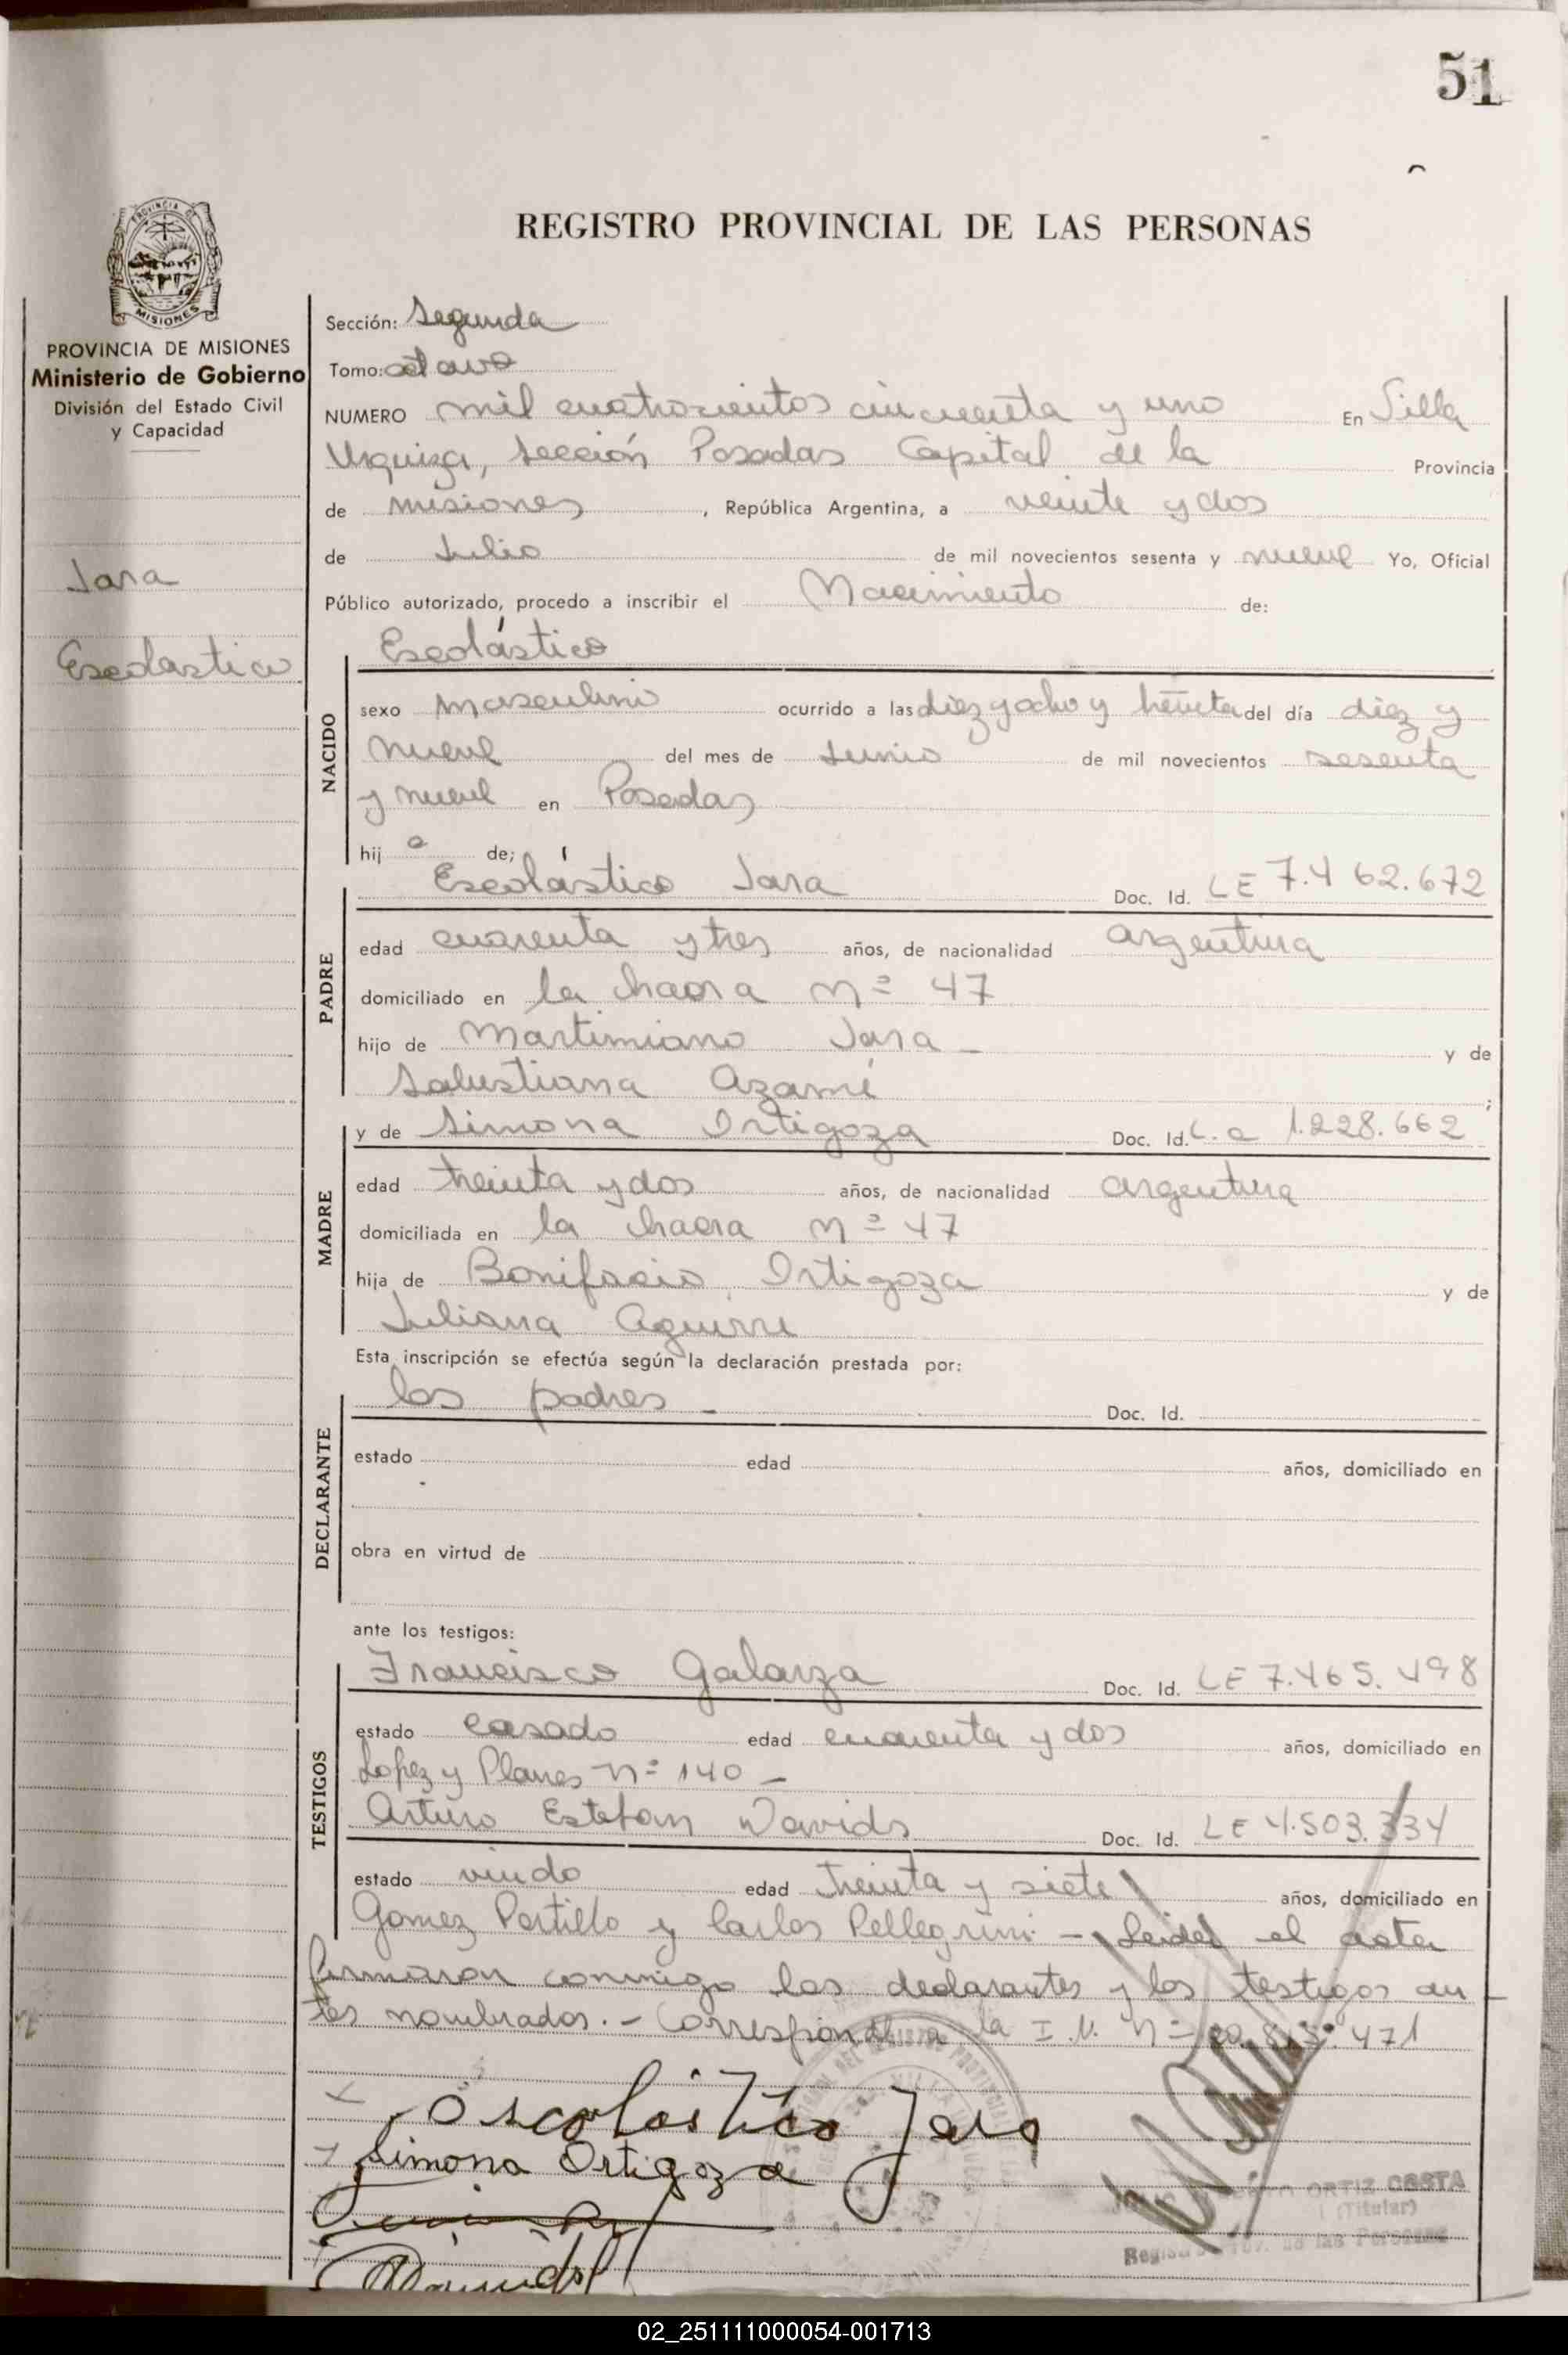 51
REGISTRO PROVINCIAL DE LAS PERSONAS
PROVINCIA DE MISIONES
Ministerio de Gobierno
División del Estado Civil
y Capacidad
Jara
Escolastico
Sección: Segunda
Tomo: octavo
NUMERO mil cuatrocientos cincuenta y uno En Villa
Urquiza, Sección Posadas Capital de la Provincia
de Misiones, República Argentina, a veinte y dos
de Julio de mil novecientos sesenta y nueve Yo, Oficial
Público autorizado, procedo a inscribir el Nacimiento de:
Escolástico
NACIDO
sexo masculino ocurrido a las diez y ocho y treinta del día diez y
nueve del mes de Junio de mil novecientos sesenta
y nueve en Posadas
hij o de;
PADRE
Escolástico Jara Doc. Id. LE 7.462.672
edad cuarenta y tres años, de nacionalidad argentina
domiciliado en la chacra nº 47
hijo de Martimiano Jara - y de
Salustiana Azame;
MADRE
y de Simona Ortigoza Doc. Id. L.C 1.228.662
edad treinta y dos años, de nacionalidad argentina
domiciliada en la chacra nº 47
hija de Bonifacio Ortigoza y de
Juliana Aguirre
Esta inscripción se efectúa según la declaración prestada por:
DECLARANTE
los padres - Doc. Id.
estado edad años, domiciliado en
obra en virtud de
ante los testigos:
TESTIGOS
Francisco Galarza Doc. Id. LE 7.465.498
estado casado edad cuarenta y dos años, domiciliado en
Lopez y Planes nº 140 -
Arturo Estefan Davids Doc. Id. LE 4.503.334
estado viudo edad treinta y siete años, domiciliado en
Gomez Portillo y Carlos Pellegrini - Leida el acta
firmaron conmigo los declarantes y los testigos an
tes nombrados. - Corresponde a la I.N. nº 20.813.471
Oscolástico Jara
Simona Ortigoza
ORTIZ COSTA
(Titular)
de las Personas
02_251111000054-001713